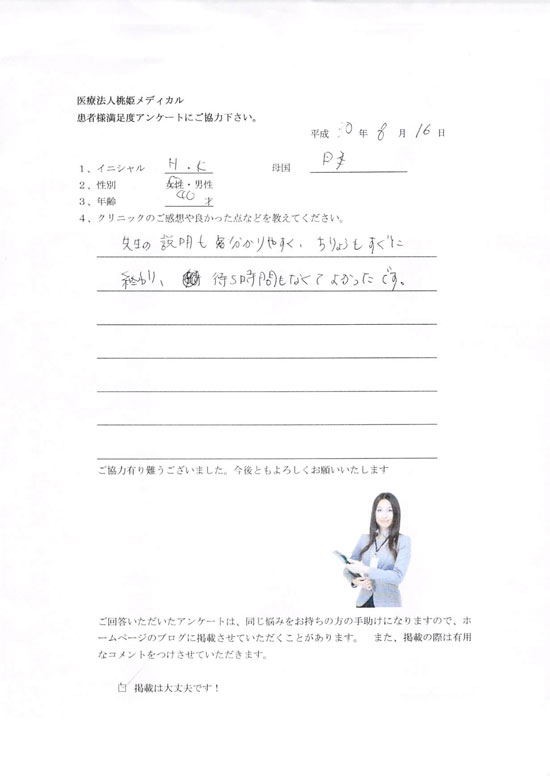 医療法人桃姫メディカル
患者様満足度アンケートにご協力下さい。
平成 30 年 8 月 16 日
1、イニシャル H・K 母国
2、性別 女性・男性
3、年齢 40 才
4、クリニックのご感想や良かった点などを教えてください。
先生の説明も分かりやすく、ちりょうもすぐに
終わり、待ち時間もなくてよかったです。
ご協力有り難うございました。今後ともよろしくお願いいたします
ご回答いただいたアンケートは、同じ悩みをお持ちの方の手助けになりますので、ホ
ームページのブログに掲載させていただくことがあります。 また、掲載の際は有用
なコメントをつけさせていただきます。
□ 掲載は大丈夫です!